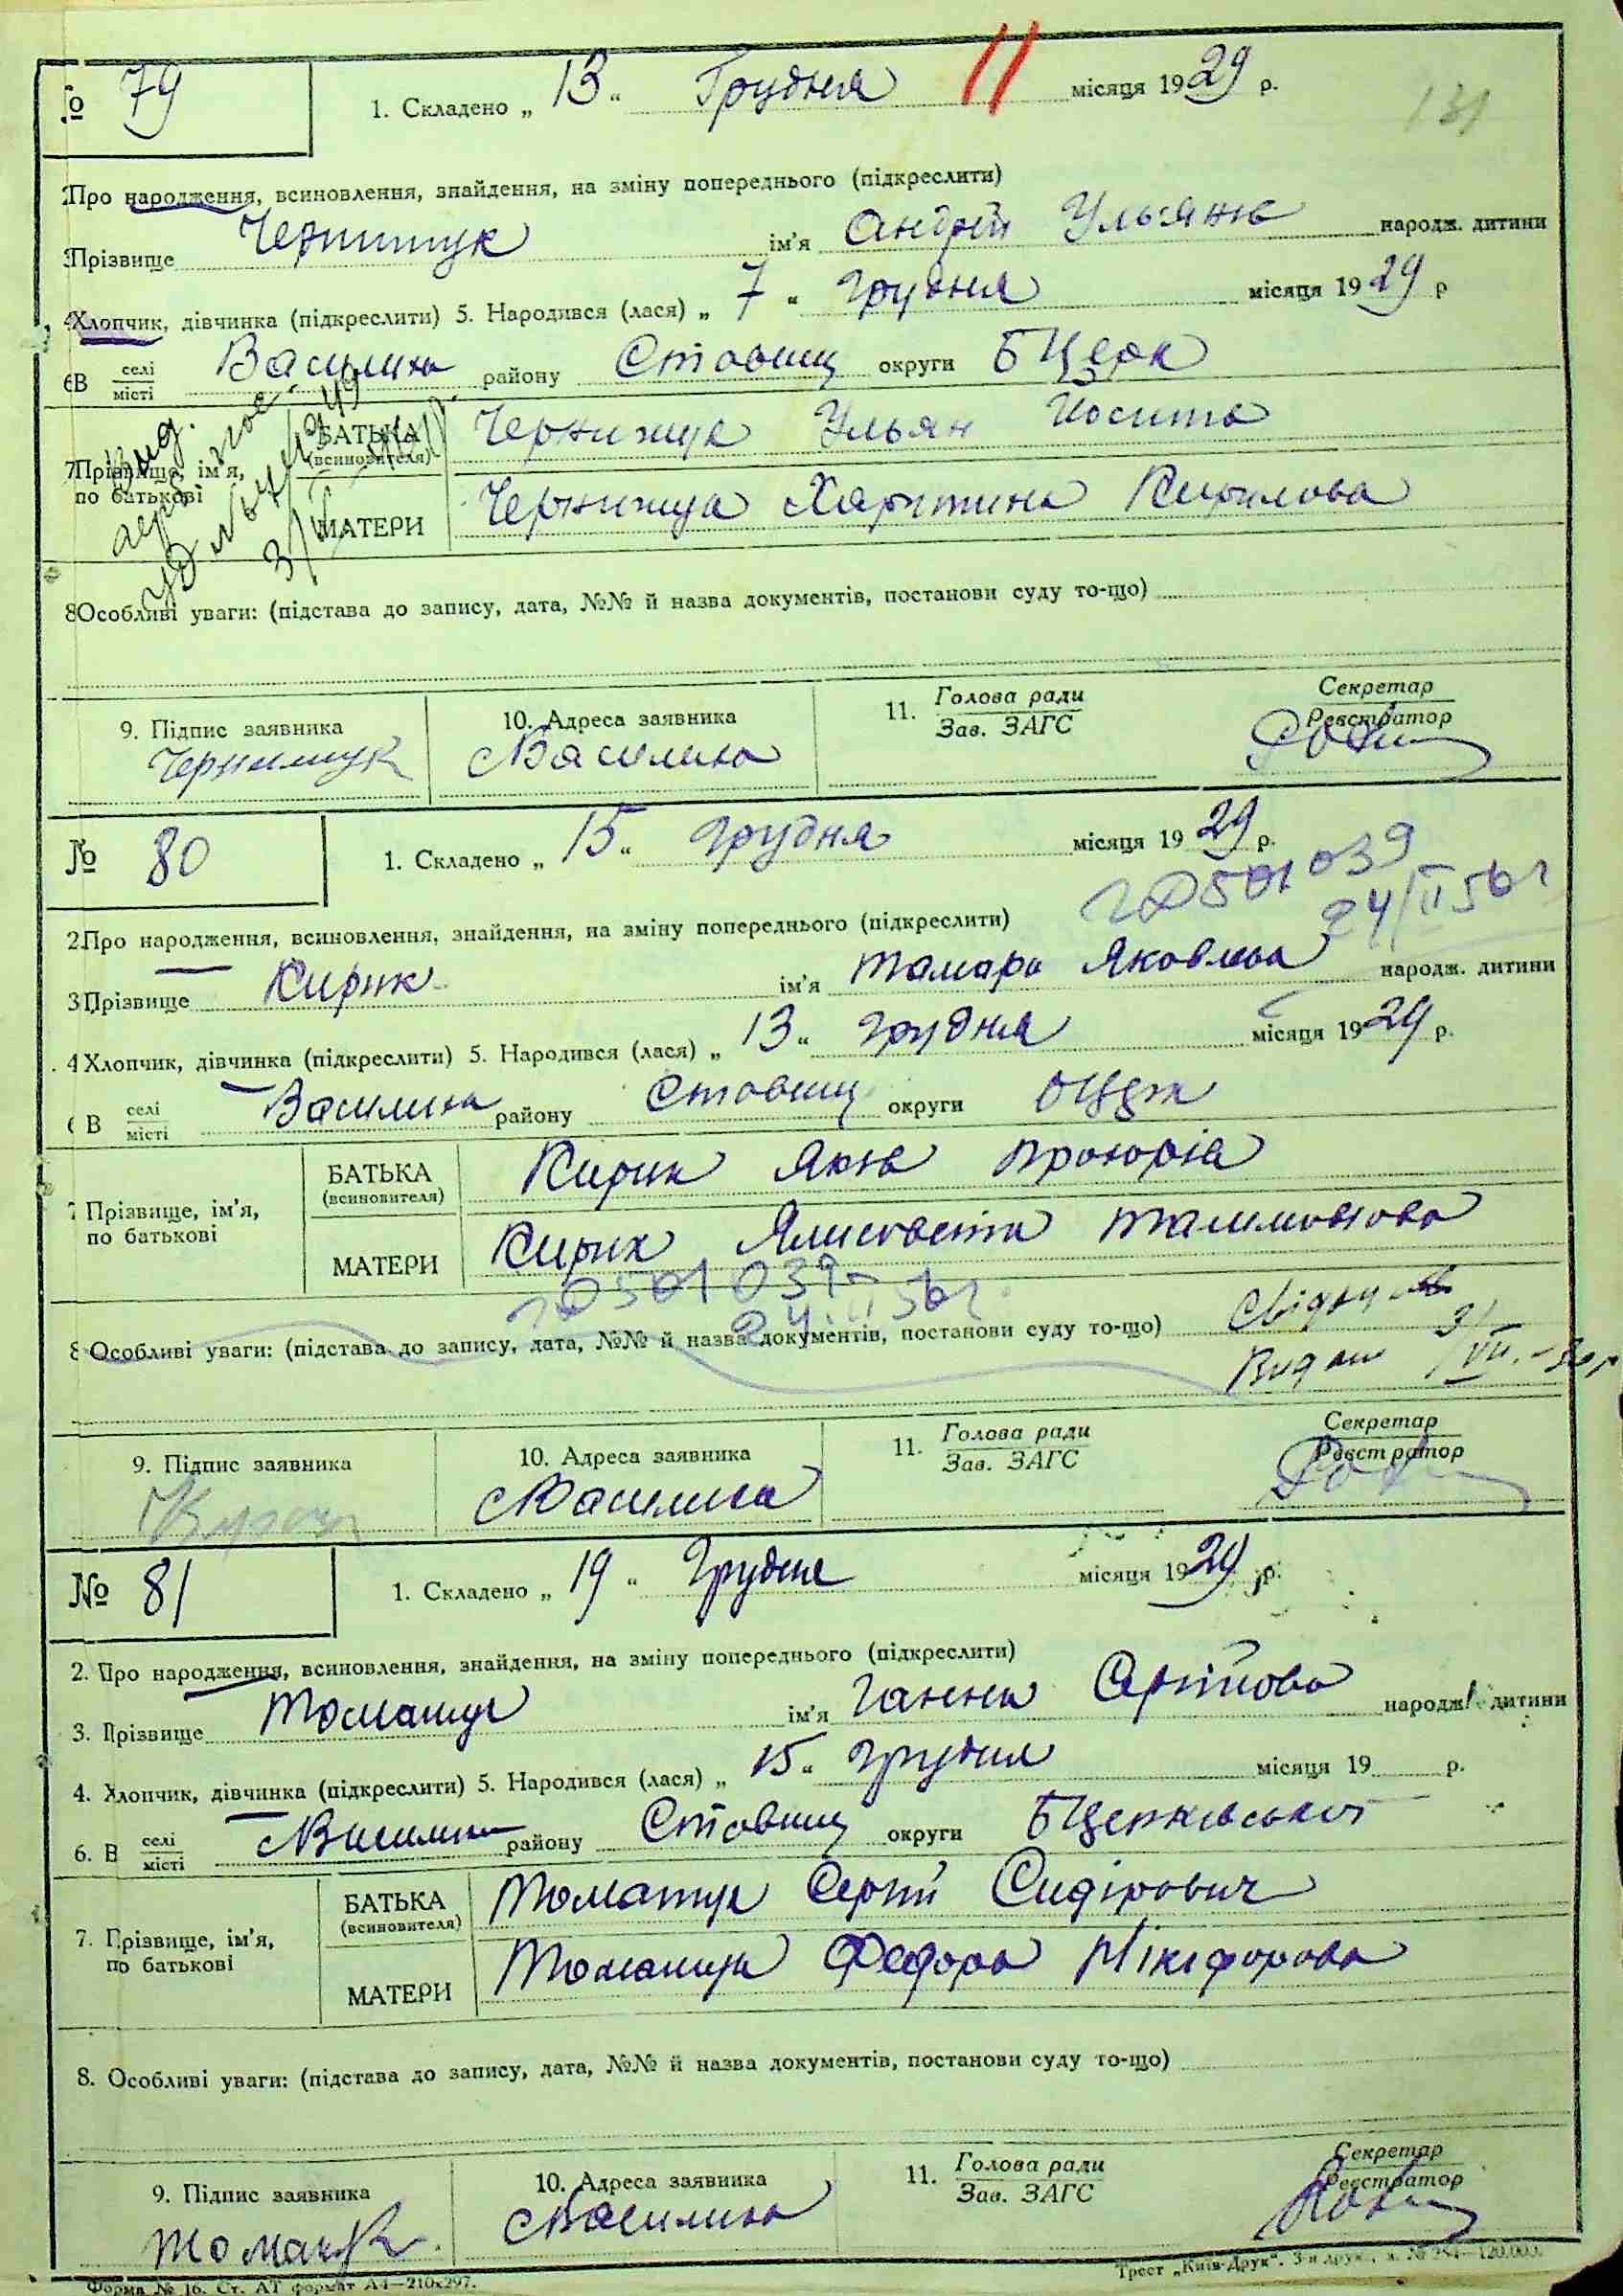 № 79
1. Складено „ 13 “ Грудня 11 місяця 1929 р.
131
Про народження, всиновлення, знайдення, на зміну попереднього (підкреслити)
Прізвище Чернишук ім'я Андрій Ульянів народж. дитини
Хлопчик, дівчинка (підкреслити) 5. Народився (лася) „ 7 “ грудня місяця 1929 р
6 В селі Василиха району Ставищ округи БЦерк
місті
БАТЬКА Чернишук Ульян Йосипів
(всиновителя)
7 Прізвище, ім'я,
по батькові
МАТЕРИ Чернишук Харитина Кирилова
8 Особливі уваги: (підстава до запису, дата, №№ й назва документів, постанови суду то-що)
9. Підпис заявника 10. Адреса заявника 11. Голова ради Секретар
Зав. ЗАГС Реєстратор
Чернишук Василиха
№ 80
1. Складено „ 15 “ грудня місяця 1929 р.
501039
24/II 56 г
2 Про народження, всиновлення, знайдення, на зміну попереднього (підкреслити)
3 Прізвище Кирик ім'я Тамара Яковлева народж. дитини
4 Хлопчик, дівчинка (підкреслити) 5. Народився (лася) „ 13 “ грудня місяця 1929 р.
В селі Василиха району Ставищ округи
місті
БАТЬКА Кирик Яків Прокопів
(всиновителя)
7 Прізвище, ім'я,
по батькові
МАТЕРИ Кирик Ялисовета
501039
24.II 56 г.
8 Особливі уваги: (підстава до запису, дата, №№ й назва документів, постанови суду то-що)
Видан 3/VII.-30 р
9. Підпис заявника 10. Адреса заявника 11. Голова ради Секретар
Зав. ЗАГС Реєстратор
Василиха
№ 81
1. Складено „ 19 “ Грудня місяця 1929 р.
2. Про народження, всиновлення, знайдення, на зміну попереднього (підкреслити)
3. Прізвище Томашук ім'я Ганна Сергійова народж. дитини
4. Хлопчик, дівчинка (підкреслити) 5. Народився (лася) „ 15 “ грудня місяця 19 р.
6. В селі Василиха району Ставищ округи БЦерківської
місті
БАТЬКА Томашук Сергій Сидірович
(всиновителя)
7. Прізвище, ім'я,
по батькові
МАТЕРИ Томашук Федора Мікіфорова
8. Особливі уваги: (підстава до запису, дата, №№ й назва документів, постанови суду то-що)
9. Підпис заявника 10. Адреса заявника 11. Голова ради Секретар
Зав. ЗАГС Реєстратор
Томашук Василиха
Форма № 16. Ст. АТ формат А4—210х297.
Трест „Київ-Друк“. 3-я друк., з. № 254—120.000.